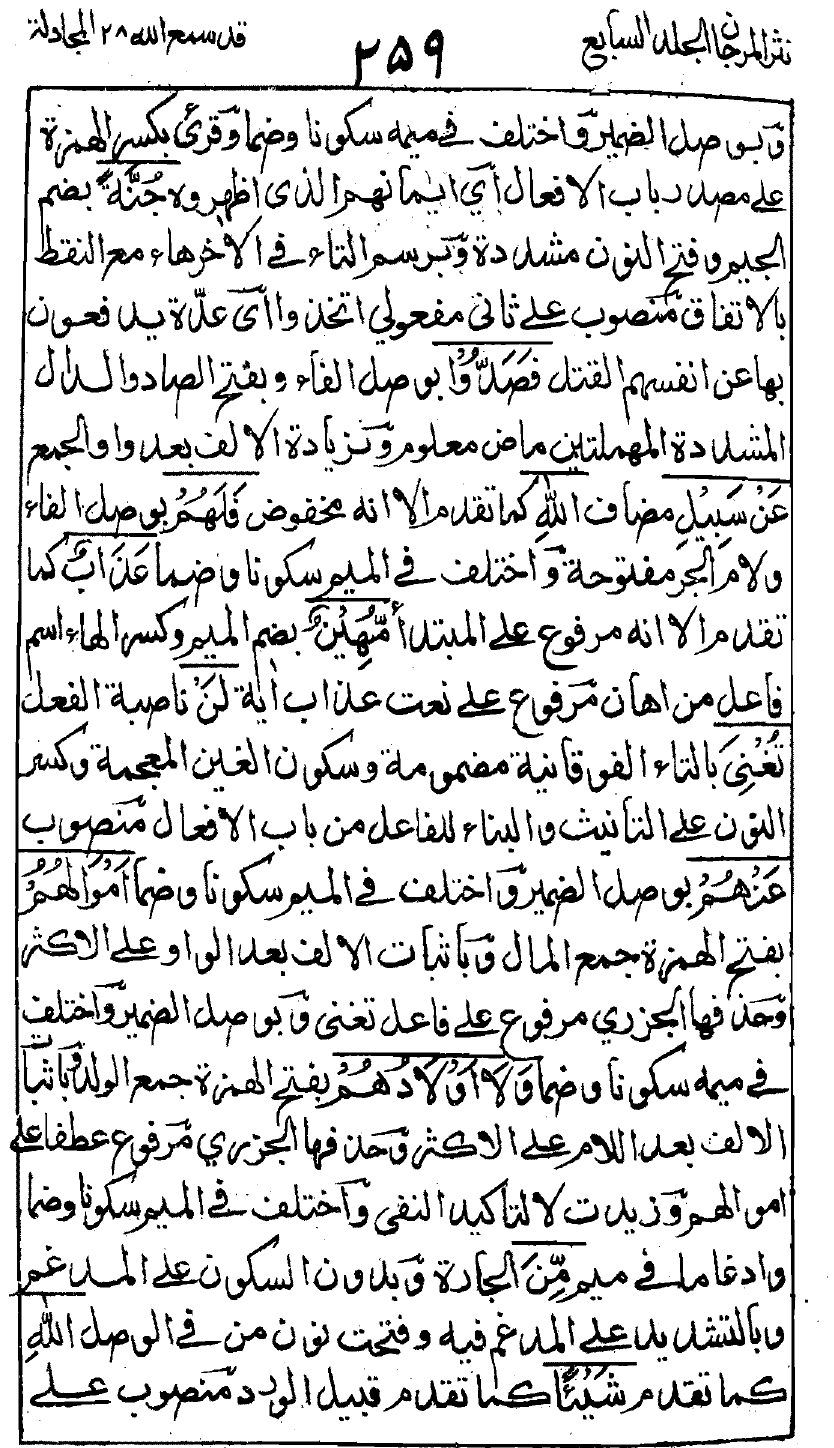 نثر المرجان الجلد السابع
٢٥٩
قد سمع الله ٢٨ المجادلة
وبوصل الضمير واختلف في ميمه سكونا وضما وقرئ بكسر الهمزة
على مصدر باب الافعال أي ايمانهم الذى اظهروه جُنَّةً بضم
الجيم وفتح النون مشددة وبرسم التاء في الاخرهاء مع النقط
بالاتفاق منصوب على ثانى مفعولي اتخذوا أى عدّة يدفعون
بها عن انفسهم القتل فَصَدُّوْا بوصل الفاء وبفتح الصاد والدال
المشددة المهملتين ماض معلوم وبزيادة الالف بعد واو الجمع
عَنْ سَبِيْلِ مضاف اللهِ كما تقدم الا انه مخفوض فَلَهُمْ بوصل الفاء
ولام الجر مفتوحة واختلف في الميم سكونا وضما عَذَابٌ كما
تقدم الا انه مرفوع على المبتدأ مُّهِيْنٌ بضم الميم وكسر الهاء اسم
فاعل من اهان مرفوع على نعت عذاب أية لَنْ ناصبة الفعل
تُغْنِيَ بالتاء الفوقانية مضمومة وسكون الغين المعجمة وكسر
النون على التأنيث والبناء للفاعل من باب الافعال منصوب
عَنْهُمْ بوصل الضمير واختلف في الميم سكونا وضما أَمْوَالُهُمْ
بفتح الهمزة جمع المال وباثبات الالف بعد الواو على الاكثر
وحذفها الجزري مرفوع على فاعل تغنى وبوصل الضمير واختلف
في ميمه سكونا وضما وَلَا أَوْلَادُهُمْ بفتح الهمزة جمع الولد وباثبات
الالف بعد اللام على الاكثر وحذفها الجزري مرفوع عطفا على
اموالهم وزيدت لا لتاكيد النفى واختلف في الميم سكونا وضما
وادغاما في ميم مِّنَ الجارة وبدون السكون على المدغم
وبالتشديد على المدغم فيه وفتحت نون من في الوصل اللهِ
كما تقدم شَيْئًا كما تقدم قبيل الورد منصوب على